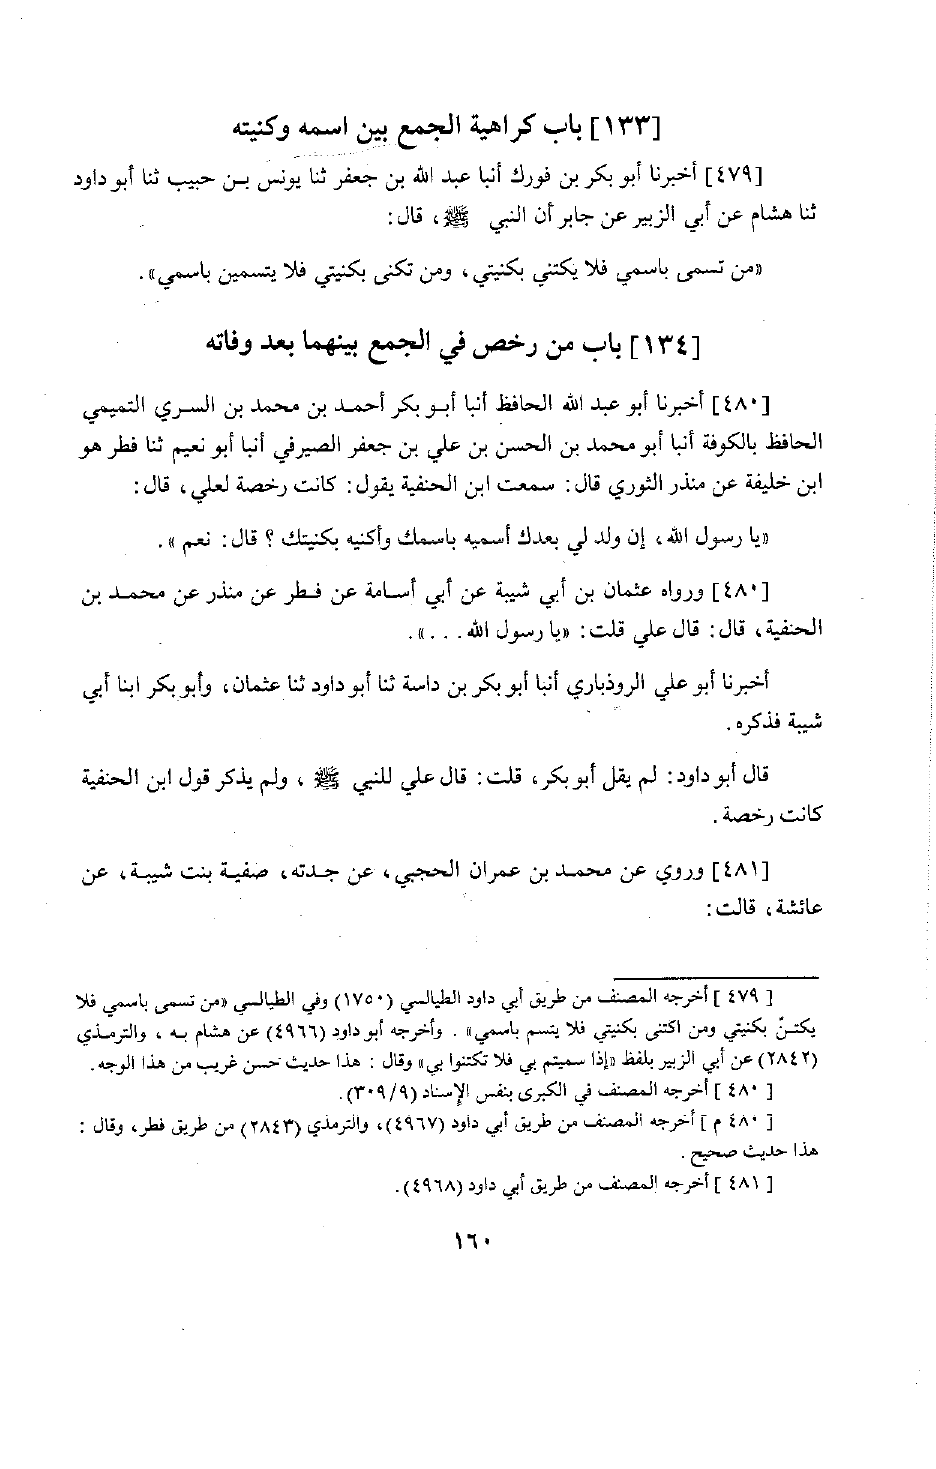 [١٣٣] باب كراهية الجمع بين اسمه وكنيته
[٤٧٩] أخبرنا أبو بكر بن فورك أنبا عبد الله بن جعفر ثنا يونس بن حبيب ثنا أبو داود
ثنا هشام عن أبي الزبير عن جابر أن النبي ﷺ، قال:
«من تسمى باسمي فلا يكتني بكنيتي، ومن تكنى بكنيتي فلا يتسمين باسمي».
[١٣٤] باب من رخص في الجمع بينهما بعد وفاته
[٤٨٠] أخبرنا أبو عبد الله الحافظ أنبا أبو بكر أحمد بن محمد بن السري التميمي
الحافظ بالكوفة أنبا أبو محمد بن الحسن بن علي بن جعفر الصيرفي أنبا أبو نعيم ثنا فطر هو
ابن خليفة عن منذر الثوري قال: سمعت ابن الحنفية يقول: كانت رخصة لعلي، قال:
«يا رسول الله، إن ولد لي بعدك أسميه باسمك وأكنيه بكنيتك؟ قال: نعم».
[٤٨٠] ورواه عثمان بن أبي شيبة عن أبي أسامة عن فطر عن منذر عن محمد بن
الحنفية، قال: قال علي قلت: «يا رسول الله...».
أخبرنا أبو علي الروذباري أنبا أبو بكر بن داسة ثنا أبو داود ثنا عثمان، وأبو بكر ابنا أبي
شيبة فذكره.
قال أبو داود: لم يقل أبو بكر، قلت: قال علي للنبي ﷺ، ولم يذكر قول ابن الحنفية
كانت رخصة.
[٤٨١] وروي عن محمد بن عمران الحجبي، عن جدته، صفية بنت شيبة، عن
عائشة، قالت:
[٤٧٩] أخرجه المصنف من طريق أبي داود الطيالسي (١٧٥٠) وفي الطيالسي «من تسمى باسمي فلا
يكتنّ بكنيتي ومن اكتنى بكنيتي فلا يتسم باسمي». وأخرجه أبو داود (٤٩٦٦) عن هشام به، والترمذي
(٢٨٤٢) عن أبي الزبير بلفظ «إذا سميتم بي فلا تكتنوا بي» وقال: هذا حديث حسن غريب من هذا الوجه.
[٤٨٠] أخرجه المصنف في الكبرى بنفس الإسناد (٣٠٩/٩).
[٤٨٠ م] أخرجه المصنف من طريق أبي داود (٤٩٦٧)، والترمذي (٢٨٤٣) من طريق فطر، وقال:
هذا حديث صحيح.
[٤٨١] أخرجه المصنف من طريق أبي داود (٤٩٦٨).
١٦٠